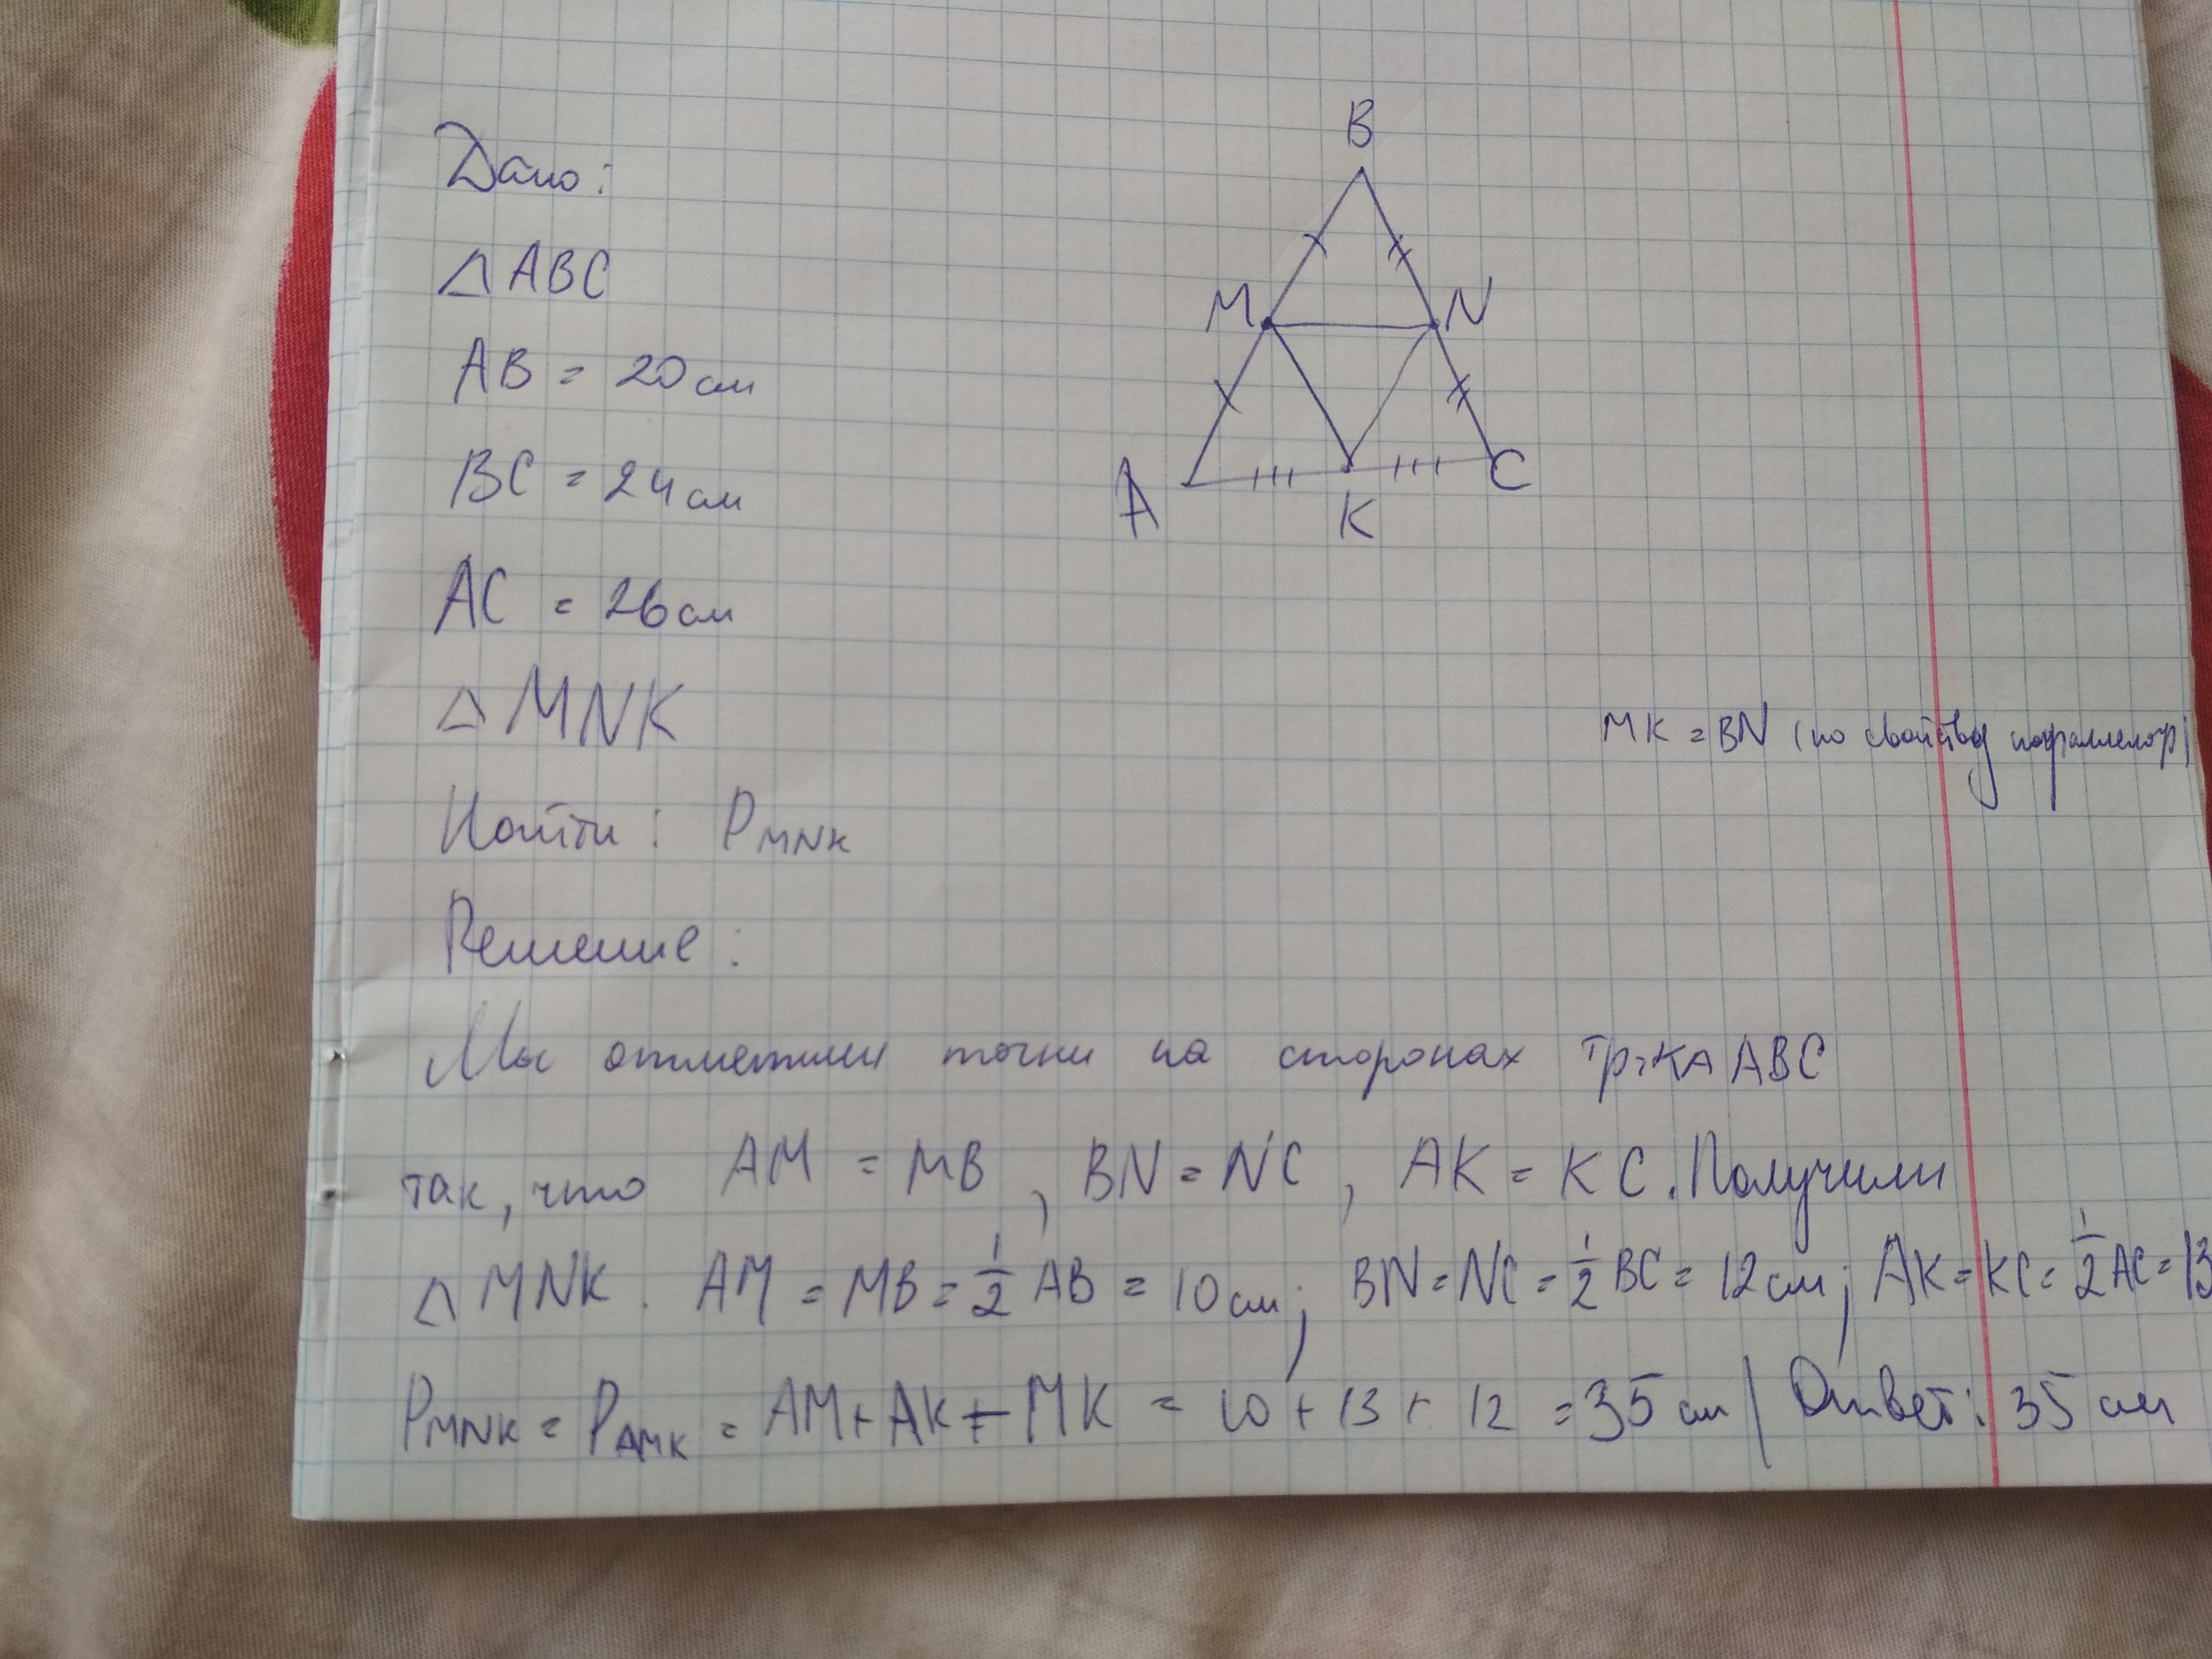 Дано:
△ABC
AB = 20 см
BC = 24 см
AC = 26 см
△MNK
Найти: P_MNK
Решение:
B
M
N
A
K
C
MK = BN (по свойству параллелогр)
Мы отметили точки на сторонах тр-ка ABC
так, что AM = MB, BN = NC, AK = KC. Получили
△MNK. AM = MB = 1/2 AB = 10 см; BN = NC = 1/2 BC = 12 см; AK = KC = 1/2 AC = 13
P_MNK = P_AMK = AM + AK + MK = 10 + 13 + 12 = 35 см | Ответ: 35 см